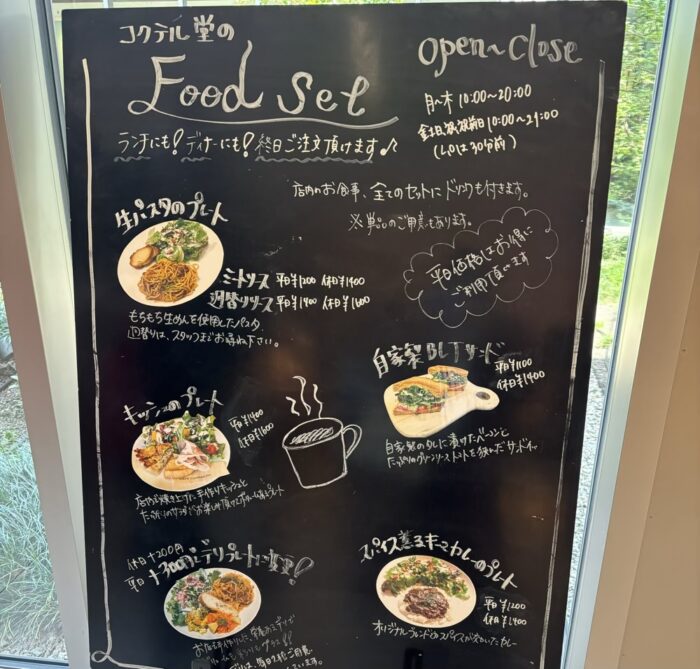 コクテル堂の
Food Set
open~close
月~木 10:00~20:00
金土日祝祝前日10:00~21:00
(L.Oは30分前)
ランチにも!ディナーにも!終日ご注文頂けます♪
店内のお食事、全てのセットにドリンクも付きます。
※単品のご用意もあります。
平日価格はお得に
ご利用頂けます
生パスタのプレート
ミートソース 平日¥1200 休日¥1400
週替りソース 平日¥1400 休日¥1600
もちもち生めんを使用したパスタ
週替りは、スタッフまでお尋ね下さい。
自家製BLTサンド
平日¥1100
休日¥1400
自家製のタレに漬けたベーコンと
たっぷりのグリーンリーフ、トマトを挟んだサンドイッチ
キッシュのプレート
平日¥1400
休日¥1600
店内で焼き上げた手作りキッシュと
たっぷりのサラダ
プレート
休日+200円
平日+300円でデリプレートに変更!
スパイス薫るキーマカレーのプレート
平日¥1200
休日¥1400
オリジナルブレンドのスパイスが
カレー